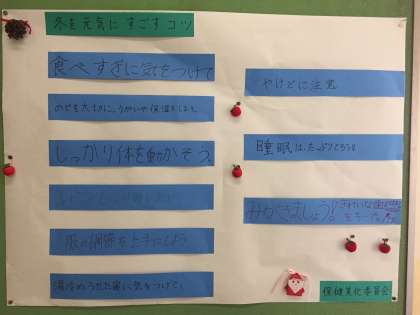 冬を元気にすごすコツ
食べすぎに気をつけて
のどを大切に、うがいや保湿をしよう
しっかり体を動かそう。
服の調節を上手にしよう
湯冷め、うたた寝に気をつけて。
やけどに注意
睡眠は、たっぷりとろう!!
みがきましょう!きれいな歯
保健美化委員会